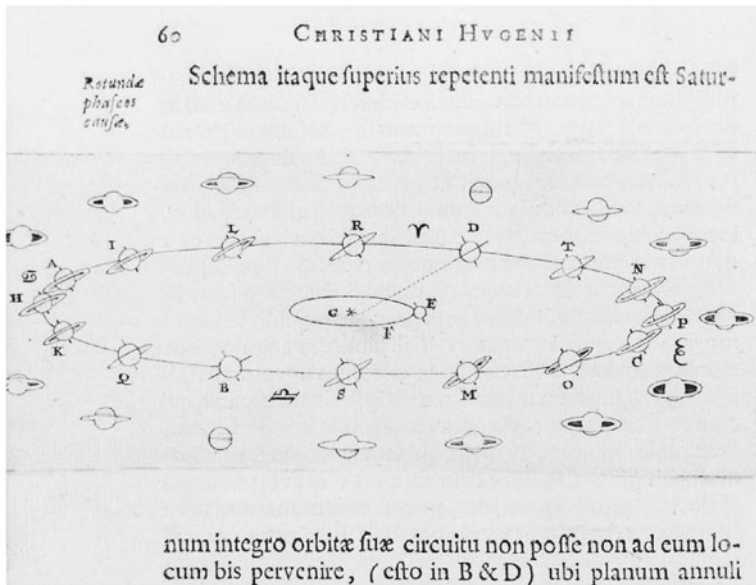 60 CHRISTIANI HVGENII
Rotundæ
phaseos
causæ.
Schema itaque ſuperius repetenti manifeſtum eſt Satur-
L R ♈ D
I T
A N
♋ H G E P
F
K C ♑
Q B ♎ S M O
num integro orbitæ ſuæ circuitu non poſſe non ad eum lo-
cum bis pervenire, (eſto in B & D) ubi planum annuli